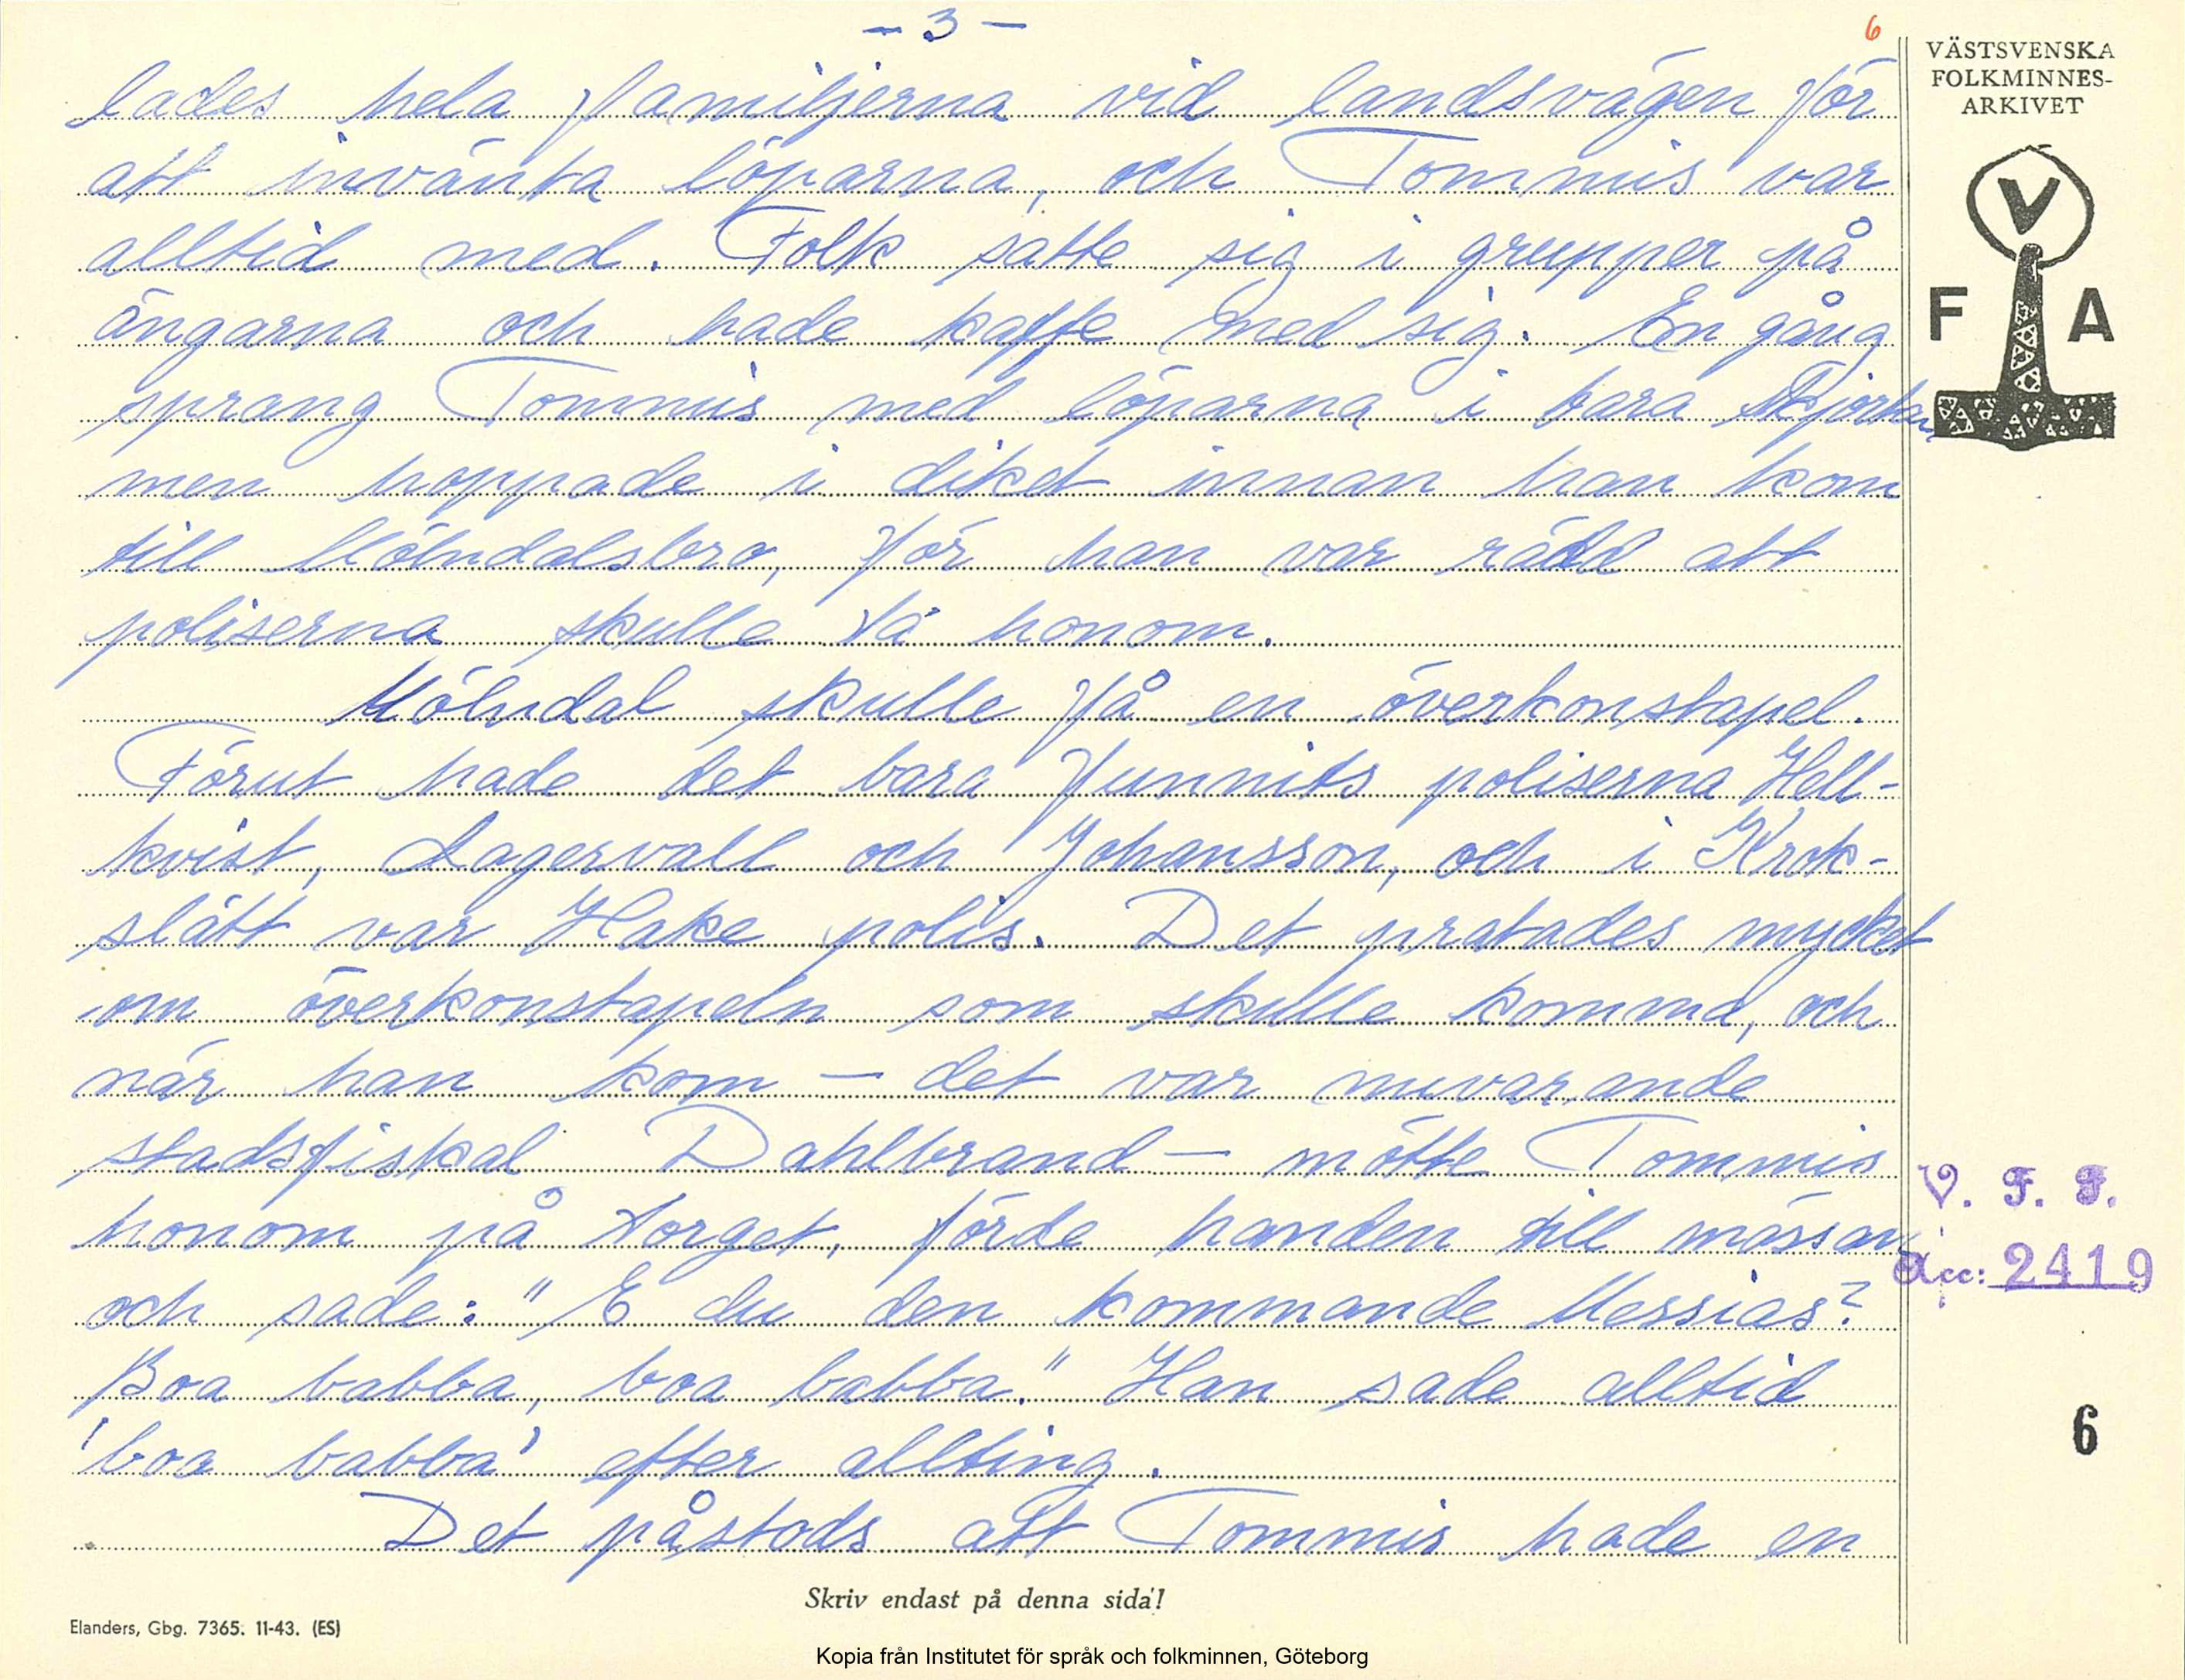 - 3 -
6
lades hela familjerna vid landsvägen för
att invänta löparna, och Tommis var
alltid med. Folk satte sig i grupper på
ängarna och hade kaffe med sig. En gång
sprang Tommis med löparna i bara skjortan,
men hoppade i diket innan han kom
till Mölndalsbro, för han var rädd att
poliserna skulle ta honom.
Mölndal skulle få en överkonstapel.
Förut hade det bara funnits poliserna Hell-
kvist, Lagervall och Johansson, och i Krok-
slätt var Hake polis. Det pratades mycket
om överkonstapeln som skulle komma, och
när han kom — det var nuvarande
stadsfiskal Dahlbrand — mötte Tommis
honom på torget, förde handen till mössan
och sade: "E du den kommande Messias?
Boa babba, boa babba." Han sade alltid
'boa babba' efter allting.
Det påstods att Tommis hade en
VÄSTSVENSKA
FOLKMINNES-
ARKIVET
V
F A
V. F. F.
Acc: 2419
6
Skriv endast på denna sida!
Elanders, Gbg. 7365. 11-43. (ES)
Kopia från Institutet för språk och folkminnen, Göteborg